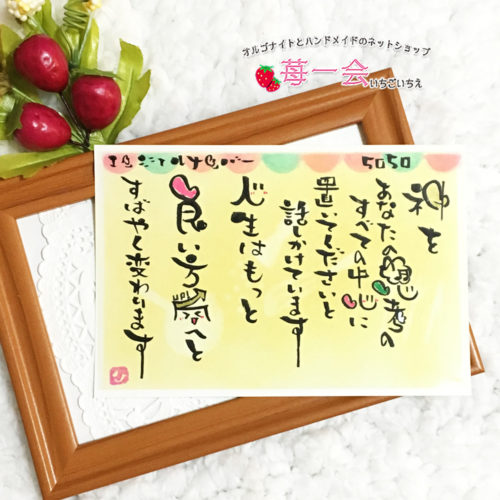 オルゴナイトとハンドメイドのネットショップ
苺一会
いちごいちえ
エンジェルナンバー 5050
神を
あなたの思考の
すべての中心に
置いてくださいと
話しかけています
人生はもっと
良い方へと
すばやく変わります